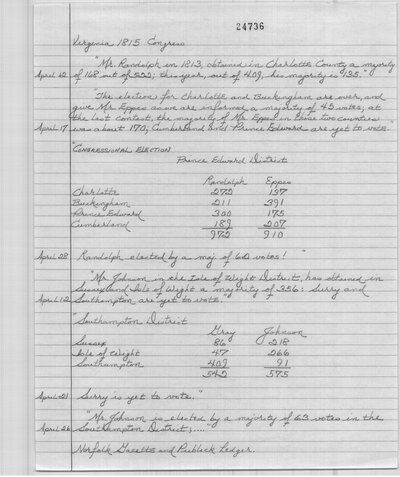 24736
Virginia 1815 Congress
"Mr. Randolph in 1813, obtained in Charlotte County a majority
April 12 of 168 out of 552; this year, out of 409, his majority is 135."
"The election for Charlotte and Buckingham are over, and
give Mr Eppes as we are informed a majority of 45 votes; at
the last contest, the majority of Mr Eppes in these two counties
April 17 was about 170, Cumberland and Prince Edward are yet to vote."
"CONGRESSIONAL ELECTION
Prince Edward District
Randolph Eppes
Charlotte 272 137
Buckingham 211 391
Prince Edward 300 175
Cumberland 189 207
972 910
April 28 Randolph elected by a maj. of 62 votes! "
"Mr. Johnson in the Isle of Wight District, has obtained in
Sussex and Isle of Wight a majority of 356: Surry and
April 12 Southampton are yet to vote."
"Southampton District
Gray Johnson
Sussex 86 218
Isle of Wight 47 266
Southampton 409 91
542 575
April 21 Surry is yet to vote."
"Mr. Johnson is elected by a majority of 63 votes in the
April 26 Southampton District;...."
Norfolk Gazette and Publick Ledger.